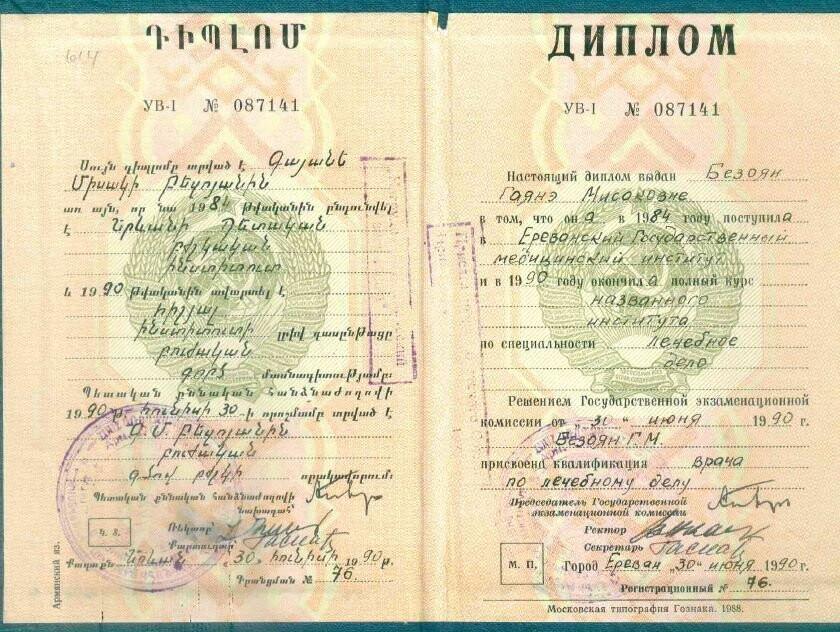 614
ԴԻՊԼՈՄ
УВ-I № 087141
Սույն դիպլոմը տրված է Գայանե
Միսակի Բեզոյանին
առ այն, որ նա 1984 թվականին ընդունվել
է Երևանի Պետական
բժշկական
ինստիտուտ
և 1990 թվականին ավարտել է
հիշյալ
ինստիտուտի լրիվ դասընթացը
բուժական
գործ մասնագիտությամբ:
Պետական քննական հանձնաժողովի
1990 թ. հունիսի 30-ի որոշմամբ տրված է
Գ.Մ. Բեզոյանին
բուժական
գծով բժշկի որակավորում:
Պետական քննական հանձնաժողովի
նախագահ
Ռեկտոր
Քարտուղար
Կ. Տ.
Քաղաքն Երևան „30„ հունիսի 1990 թ.
Գրանցման № 76.
Армянский яз.
ДИПЛОМ
УВ-I № 087141
Настоящий диплом выдан Безоян
Гаянэ Мисаковне
в том, что она в 1984 году поступила
в Ереванский Государственный
медицинский институт
и в 1990 году окончила полный курс
названного
института
по специальности лечебное
дело
Решением Государственной экзаменационной
комиссии от „30" июня 1990 г.
Безоян Г.М.
присвоена квалификация врача
по лечебному делу
Председатель Государственной
экзаменационной комиссии
Ректор
Секретарь
М. П.
Город Ереван „30" июня 1990 г.
Регистрационный № 76.
Московская типография Гознака. 1988.